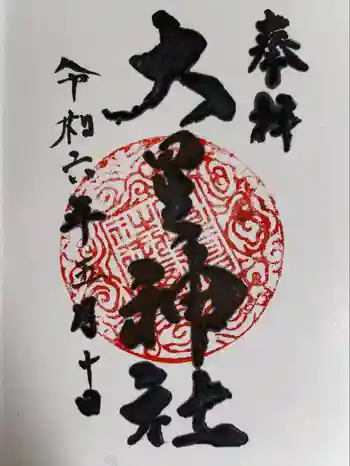 奉拝
大星神社
令和六年五月十日